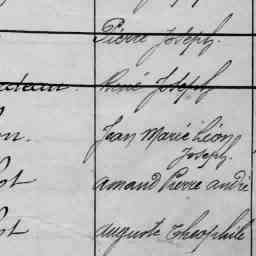 Pierre Joseph.
René Joseph
Jean Marie Léon
Joseph.
Amand Pierre André
Auguste Théophile